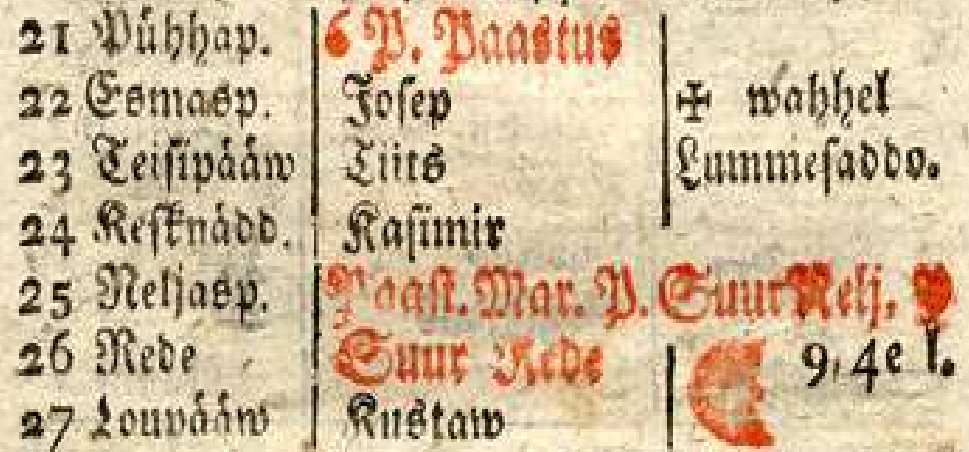 21 Pühhap. 6 P. Paastus
22 Esmasp. Josep ✠ wahhel
23 Teisipääw Tiits Lummesaddo.
24 Kesknädd. Kasimir
25 Neljasp. Paast. Mar. P. Suur Nelj. P
26 Rede Suur Rede ☾ 9, 4e l.
27 Loupääw Kustaw